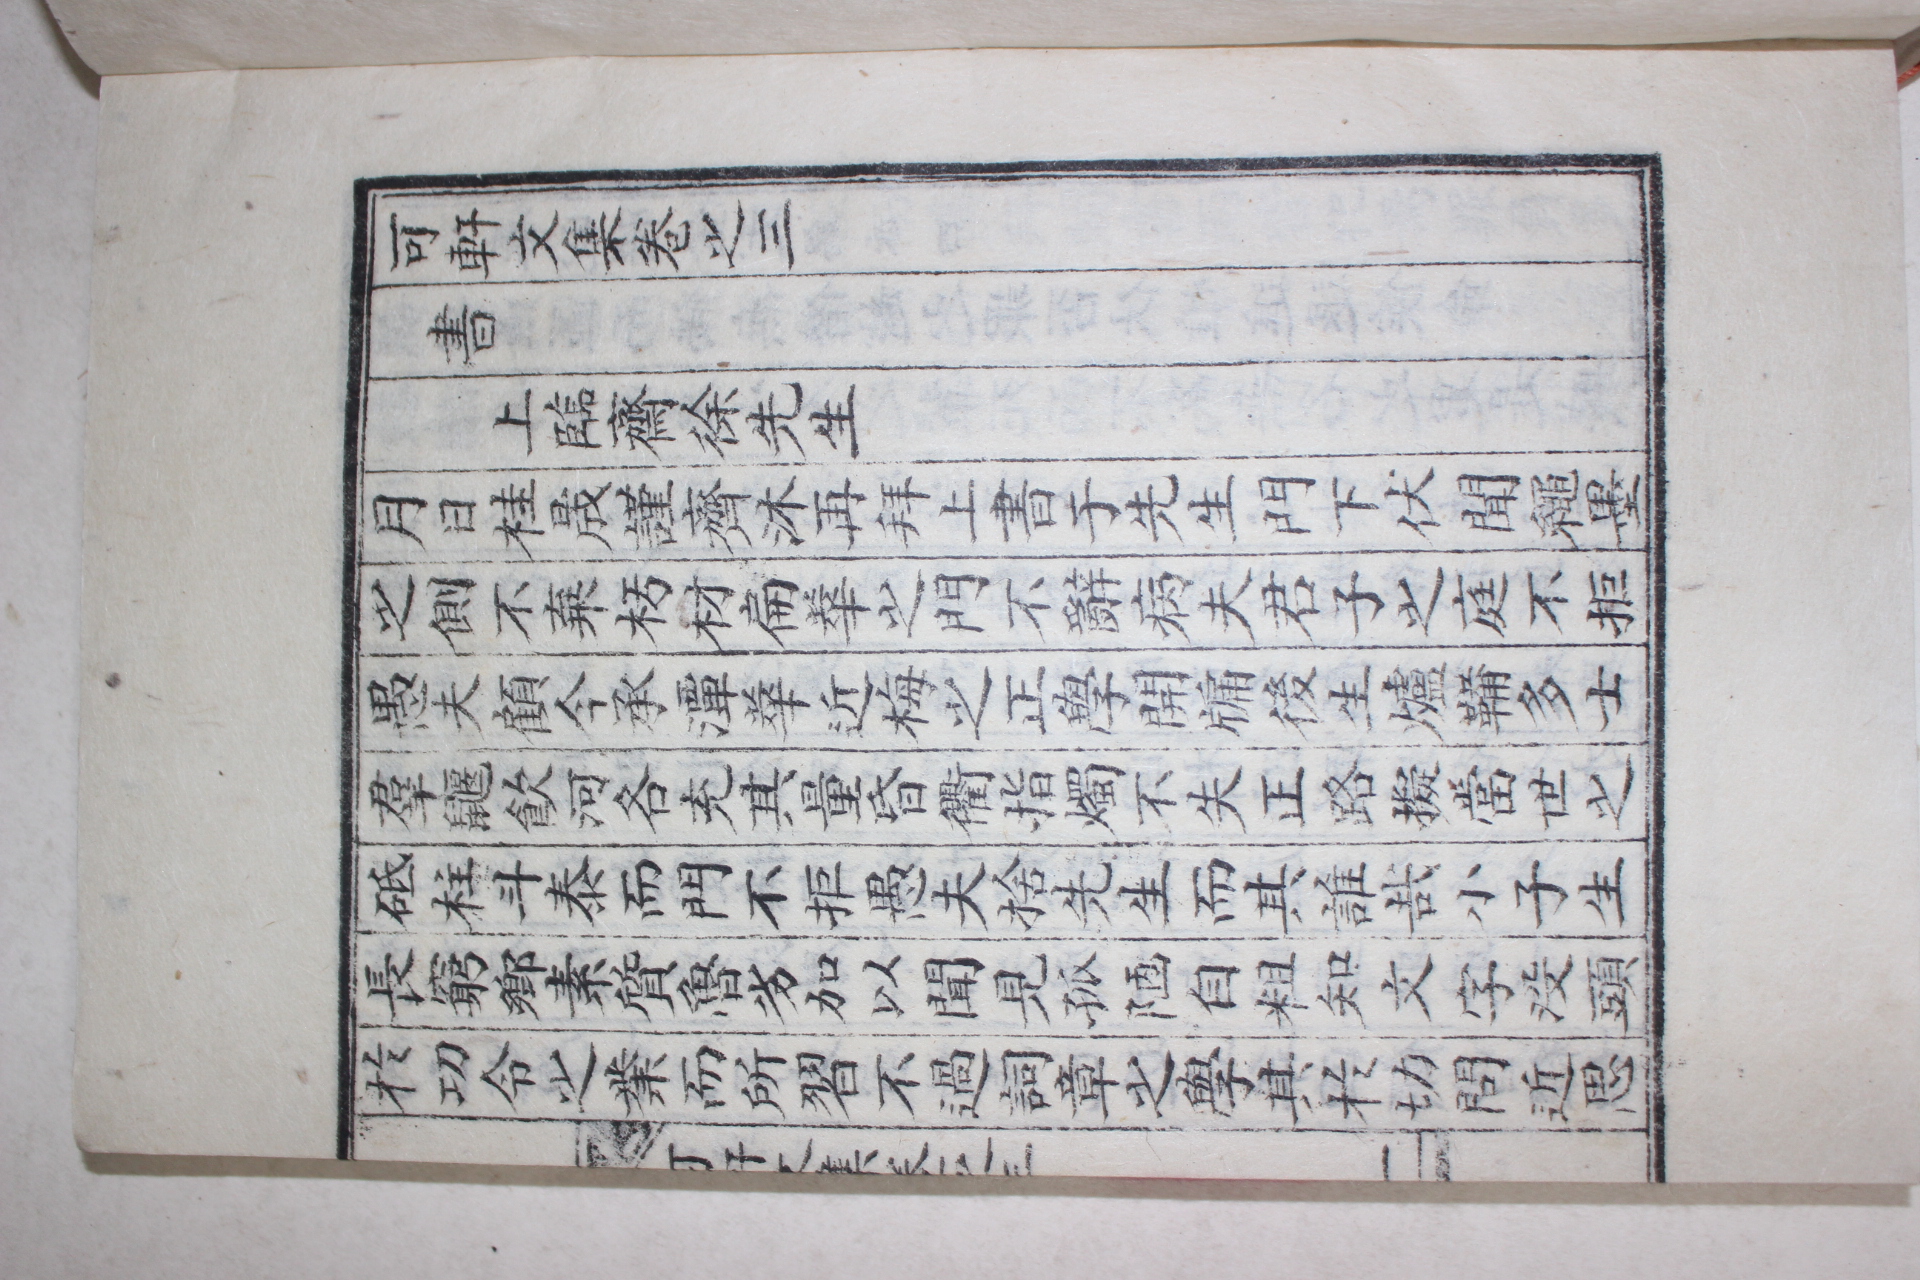 可軒文集卷之三
書
上臨齋徐先生
月日桂晟謹齊沐再拜上書于先生門下伏聞繩墨
之側不棄朽材扁華之門不辭病夫君子之庭不拒
愚夫顧今承潭華近梅之正學開牖後生爐鞴多士
羣鼴飮河各充其量昏衢指燭不失正路擬當世之
砥柱斗泰而門不拒愚夫捨先生而其誰哉小子生
長窮鄉素質魯劣加以聞見孤陋自粗知文字沒頭
於功令之業而所習不過詞章之學其於切問近思
可軒文集卷之三